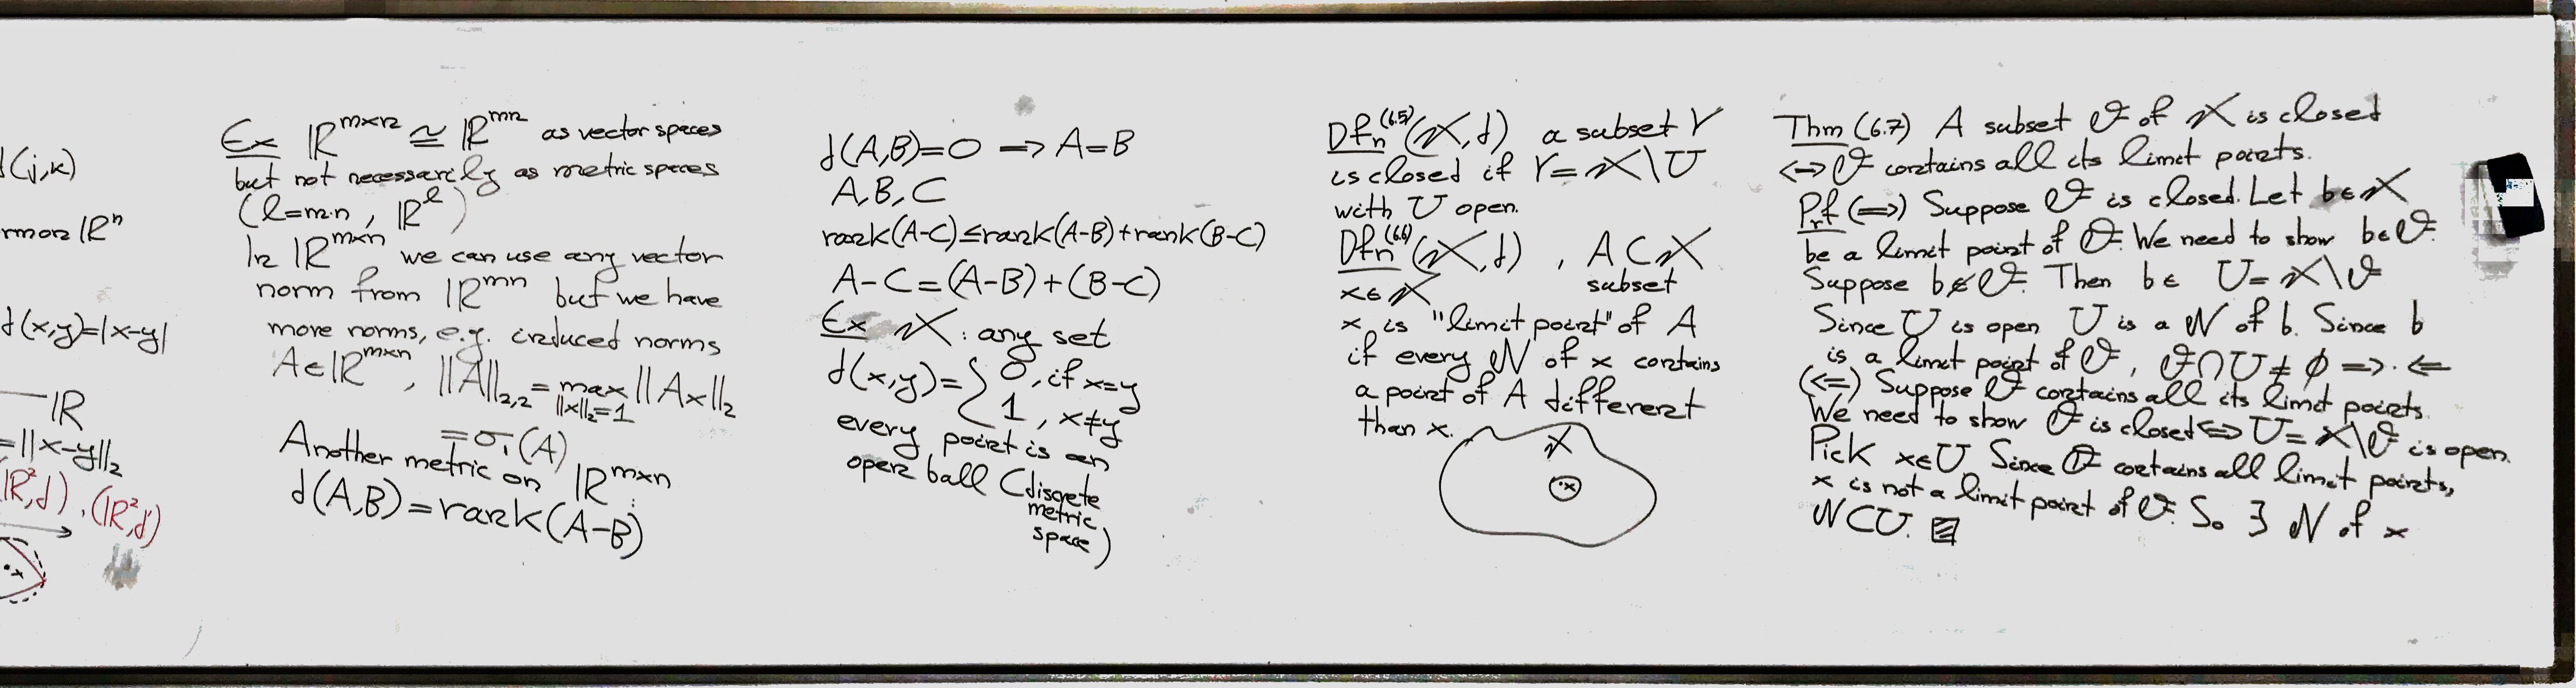 d(j,k)
rm on ℝⁿ
d(x,y)=|x-y|
ℝ
=||x-y||₂
(ℝ²,d), (ℝ²,d)
·x
Ex ℝ^{m×n} ≅ ℝ^{mn} as vector spaces
but not necessarily as metric spaces
(l=m·n, ℝ^l)
In ℝ^{m×n} we can use any vector
norm from ℝ^{mn} but we have
more norms, e.g. induced norms
A∈ℝ^{m×n}, ||A||_{2,2} = max_{||x||₂=1} ||Ax||₂
=σ₁(A)
Another metric on ℝ^{m×n}:
d(A,B)=rank(A-B)
d(A,B)=0 => A=B
A,B,C
rank(A-C)≤rank(A-B)+rank(B-C)
A-C=(A-B)+(B-C)
Ex X: any set
d(x,y)={0, if x=y
1, x≠y
every point is an
open ball (discrete
metric
space)
Dfn (6.5) (X,d) a subset Y
is closed if Y=X\U
with U open.
Dfn (6.6) (X,d), A⊂X
x∈X subset
x is "limit point" of A
if every N of x contains
a point of A different
than x.
X
·x
Thm (6.7) A subset F of X is closed
<=> F contains all its limit points.
Prf (=>) Suppose F is closed. Let b∈X
be a limit point of F. We need to show b∈F.
Suppose b∉F. Then b∈ U=X\F
Since U is open U is a N of b. Since b
is a limit point of F, F∩U≠∅ =>·<=
(<=) Suppose F contains all its limit points.
We need to show F is closed <=> U=X\F is open.
Pick x∈U Since F contains all limit points,
x is not a limit point of F. So ∃ N of x
N⊂U. ▨